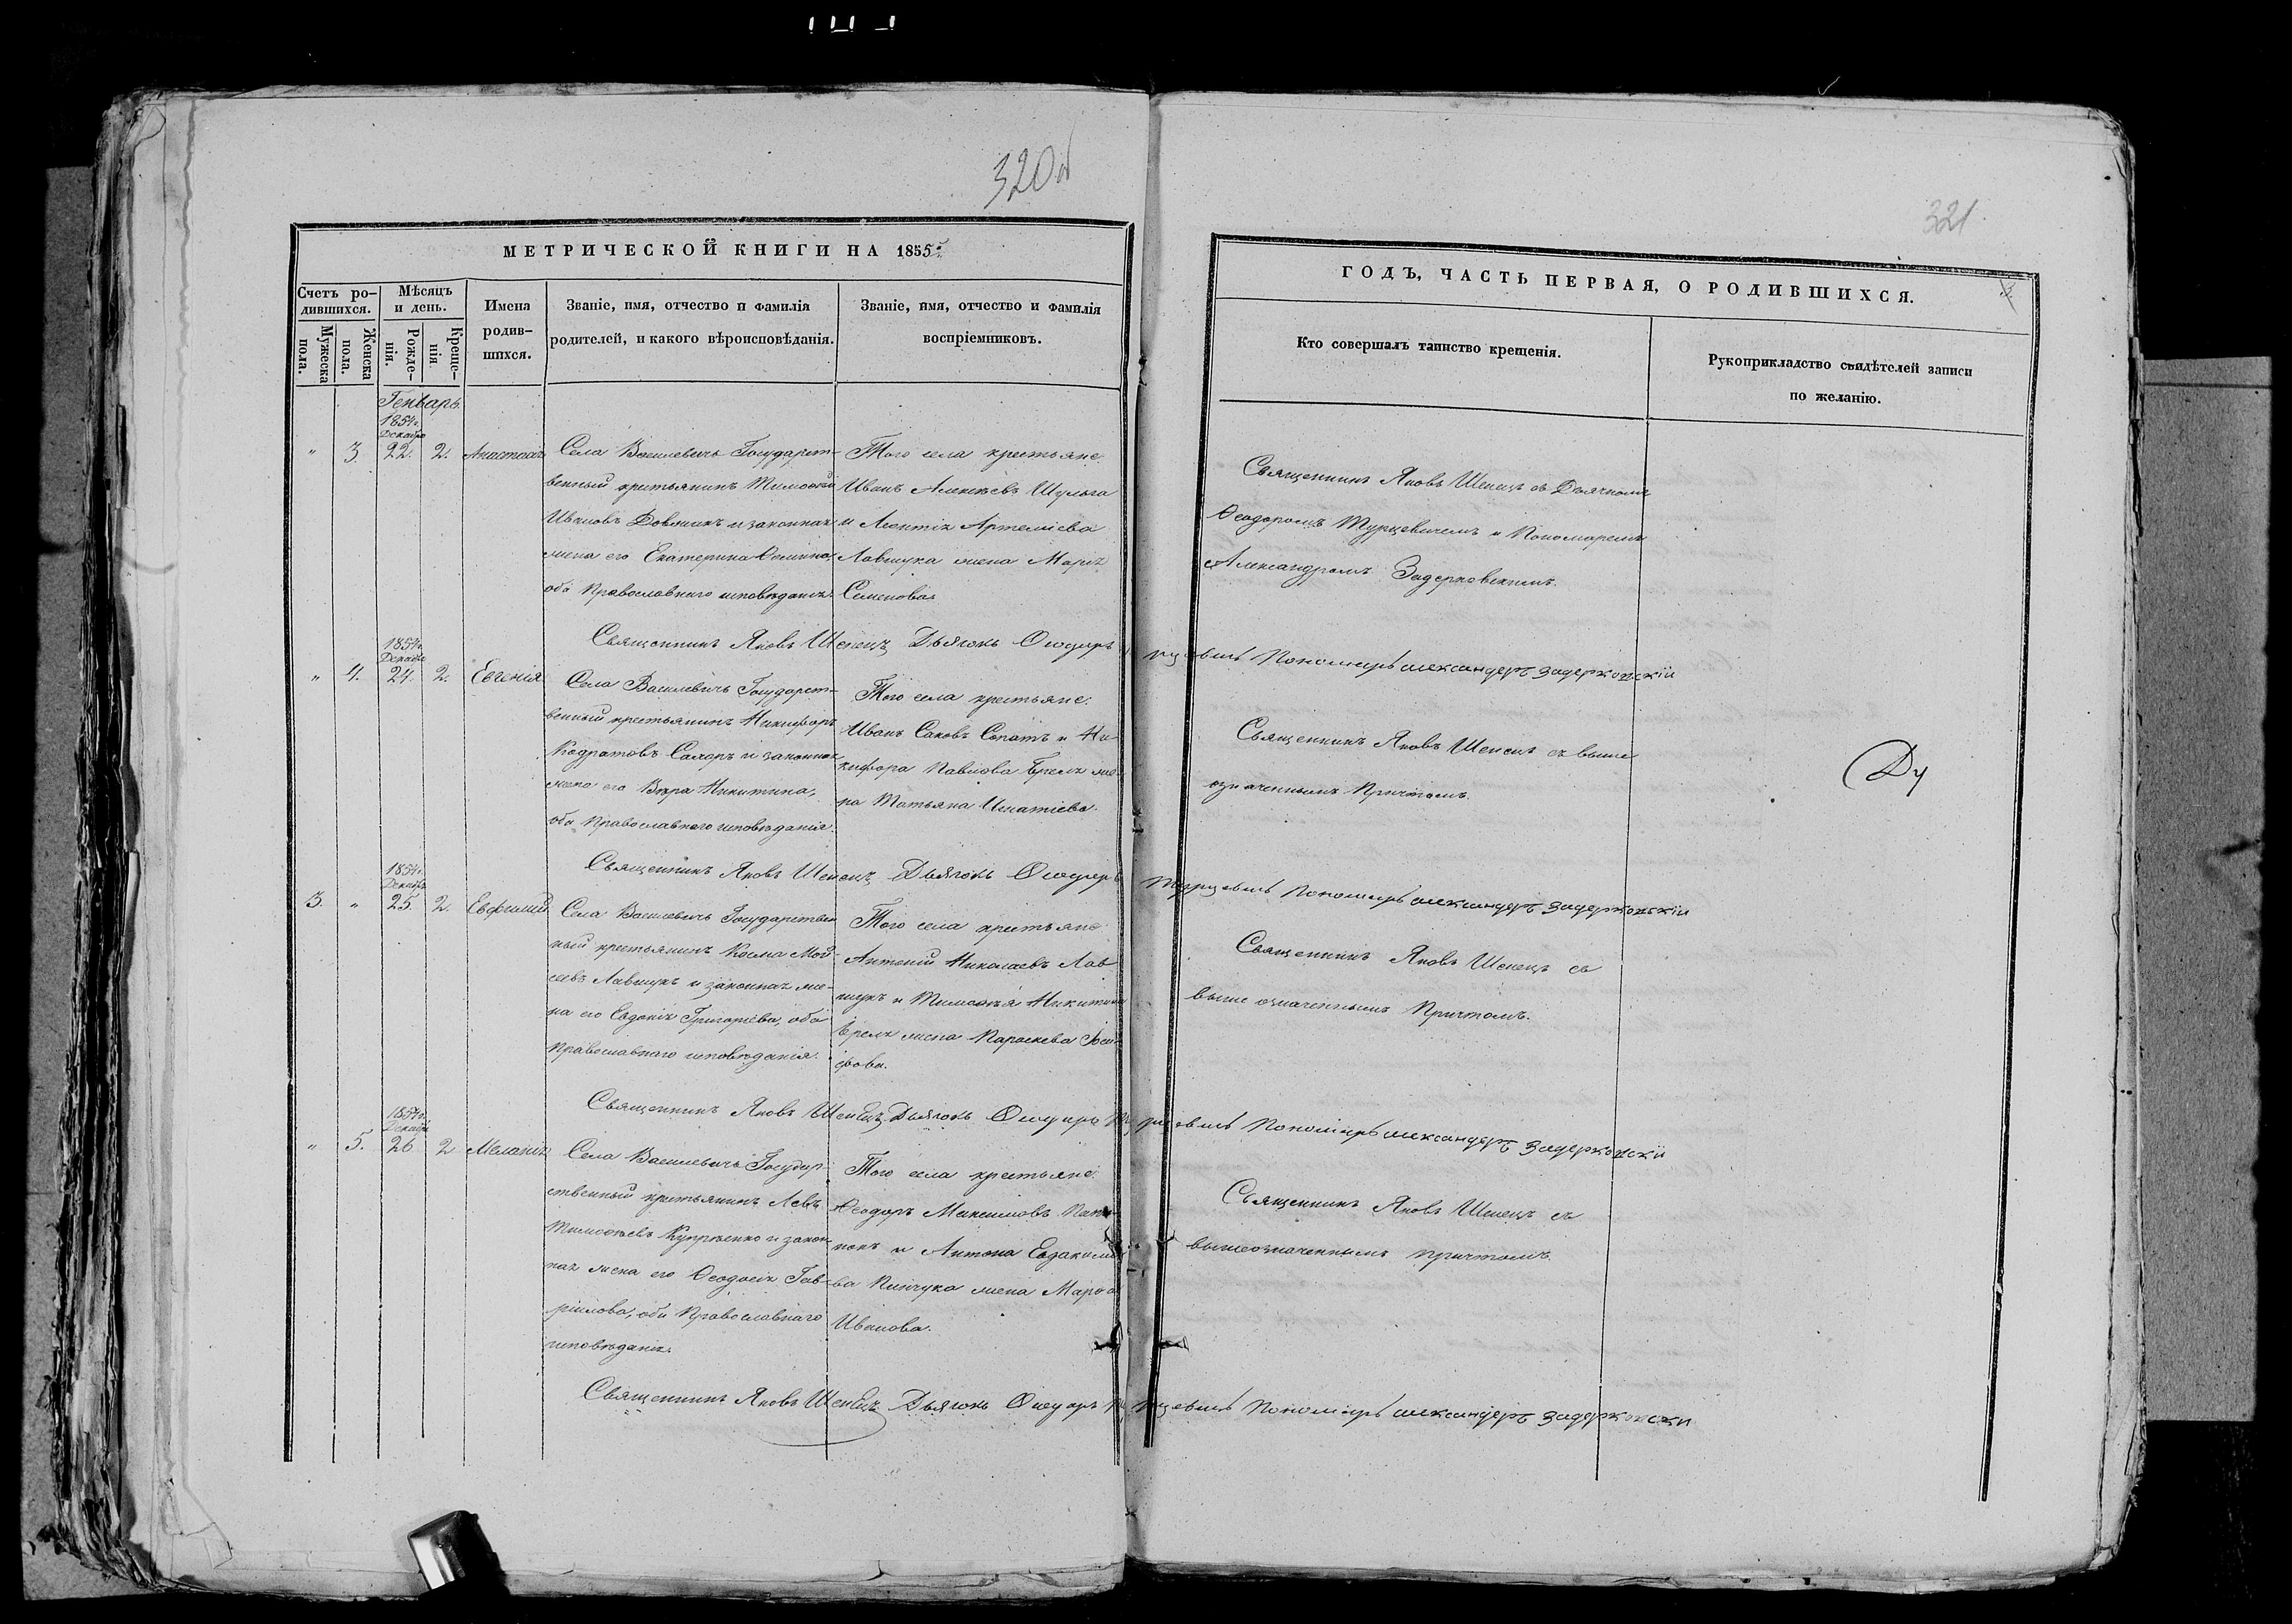 320 об
МЕТРИЧЕСКОЙ КНИГИ НА 1855
Счетъ ро-
дившихся.
Мужеска
пола.
Женска
пола.
Мѣсяцъ
и день.
Рожде-
нія.
Креще-
нія
Имена
родив-
шихся.
Званіе, имя, отчество и фамилія
родителей, и какого вѣроисповѣданія.
Званіе, имя, отчество и фамилія
воспріемниковъ.
Генварь.
1854г.
Декабр
" 3. 22. 2. Анастасія
Села Василевичъ Государст-
венный крестьянинъ Тимоѳей
Ивановъ Довжикъ и законная
жена его Екатерина Ѳомина,
оба Православнаго исповѣданія.
Того села крестьяне.
Иванъ Алексѣевъ Шульга
и Леонтія Артеміева
Лавшука жена Марія
Семенова.
Священникъ Яковъ Шепецъ Дьячокъ Ѳеодоръ
1854г.
Декабр
" 4. 24. 2. Евгенія
Села Василевичъ Государст-
венный крестьянинъ Никифоръ
Кодратовъ Сахаръ и законная
жена его Вѣра Никитина,
оба Православнаго исповѣданія.
Того села крестьяне.
Иванъ Саковъ Сопотъ и Ни-
кифора Павлова Брелъ же-
на Татьяна Игнатіева.
Священникъ Яковъ Шепецъ Дьячокъ Ѳеодоръ
1854г.
Декабр
3. " 25. 2. Евфимій
Села Василевичъ Государствен
ный крестьянинъ Косма Мой-
сеевъ Лавшукъ и законная же-
на его Евдокія Григоріева, оба
Православнаго исповѣданія.
Того села крестьяне
Антоній Николаевъ Лав
шукъ и Тимоѳея Никитина
Брелъ жена Параскева Іоси-
фова.
Священникъ Яковъ Шепецъ Дьячокъ Ѳеодоръ
1854г.
Декабр
" 5. 26 2 Меланія
Села Василевичъ Государ-
ственный крестьянинъ Левъ
Тимоѳеевъ Купріенко и закон
ная жена его Ѳеодосія Гав-
ріилова, оба Православнаго
исповѣданія.
Того села крестьяне.
Ѳеодоръ Максимовъ
и Антона Евдакимо
ва Пинчука жена Марѳа
Иванова.
Священникъ Яковъ Шепецъ Дьячокъ Ѳеодоръ
321
ГОДЪ, ЧАСТЬ ПЕРВАЯ, О РОДИВШИХСЯ.
Кто совершалъ таинство крещенія.
Рукоприкладство свидѣтелей записи
по желанію.
Священникъ Яковъ Шепецъ съ Дьячкомъ
Ѳеодоромъ Турцевичемъ и Пономаремъ
Александромъ Задерковскимъ.
Турцевичъ Пономарь Александеръ Задерковскій
Священникъ Яковъ Шепецъ съ выше
означеннымъ Причтомъ.
Турцевичъ Пономарь Александеръ Задерковскій
Священникъ Яковъ Шепецъ съ
выше означеннымъ Причтомъ.
Турцевичъ Пономарь Александеръ Задерковскій
Священникъ Яковъ Шепецъ съ
вышеозначеннымъ причтомъ.
Турцевичъ Пономарь Александеръ Задерковски